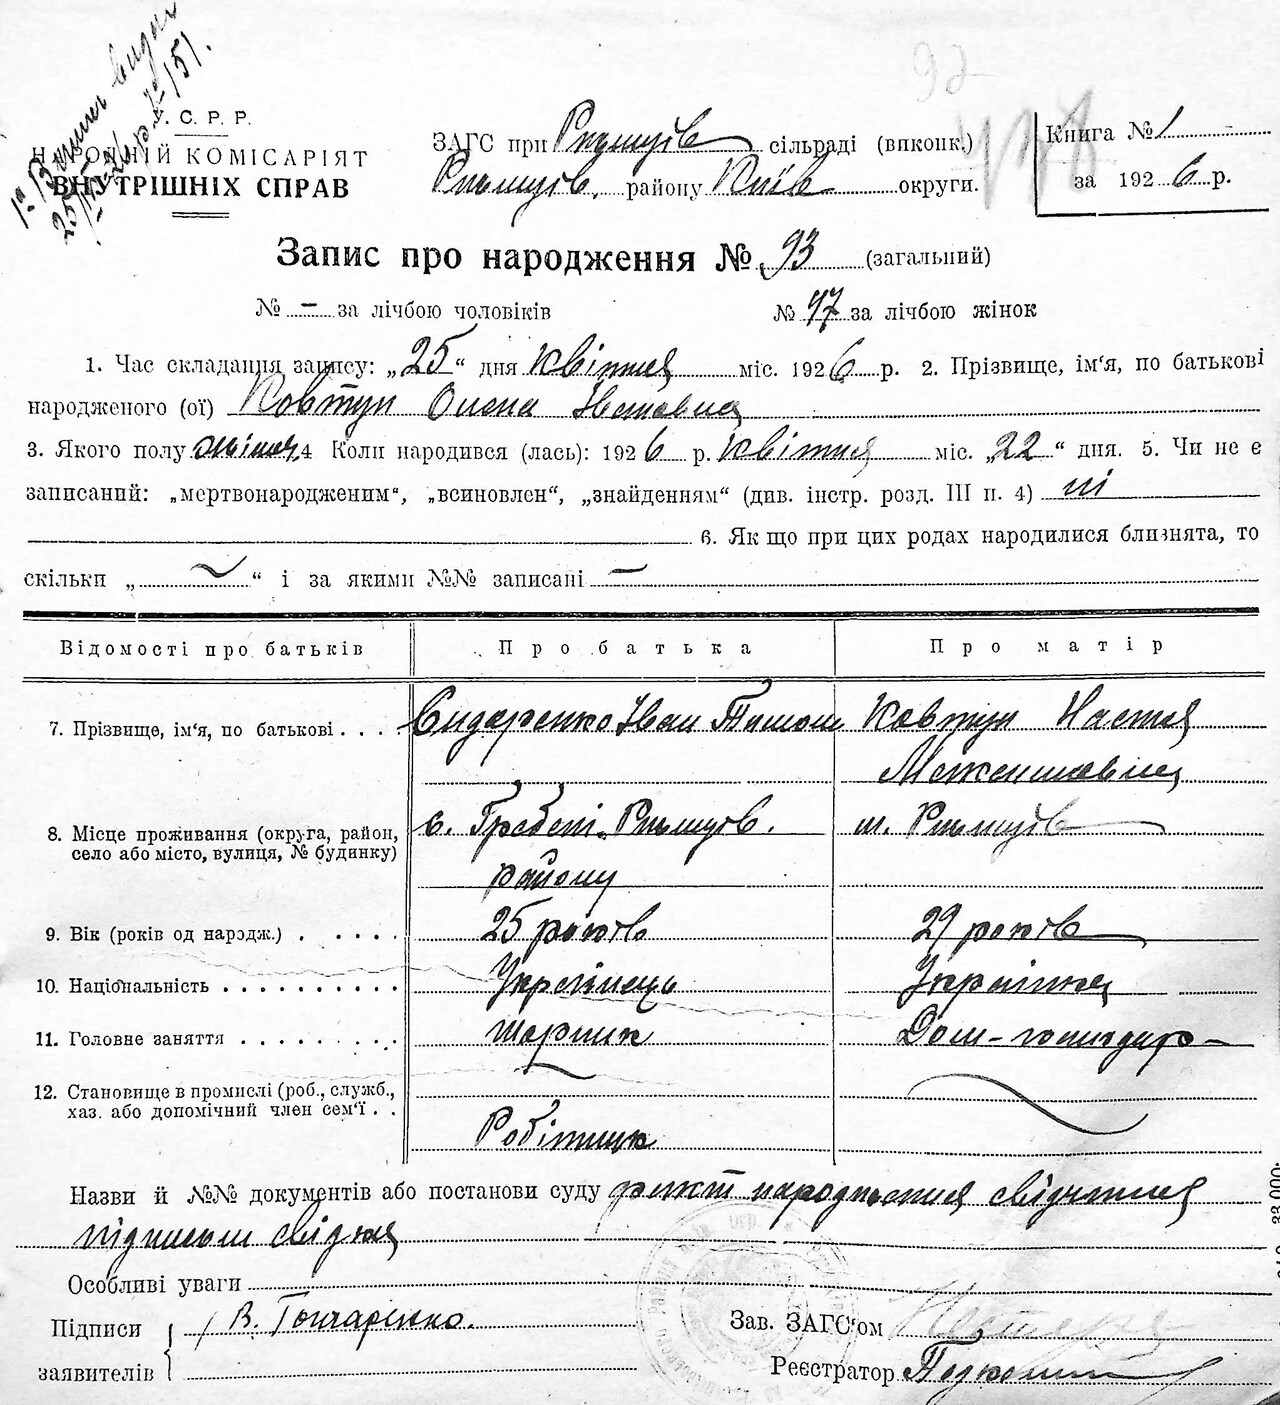 У. С. Р. Р.
НАРОДНІЙ КОМІСАРІЯТ
ВНУТРІШНІХ СПРАВ
ЗАГС при Ржищів сільраді (виконк.)
Ржищів. району Київ округи.
Книга № 1
за 1926 р.
Запис про народження № 93 (загальний)
№ — за лічбою чоловіків № 47 за лічбою жінок
1. Час складання запису: „25“ дня квітня міс. 1926 р. 2. Прізвище, ім'я, по батькові
народженого (ої) Ковтун Олена Івановна
3. Якого полу жіноч. 4 Коли народився (лась): 1926 р. квітня міс. „22“ дня. 5. Чи не є
записаний: „мертвонародженим“, „всиновлен“, „знайденням“ (див. інстр. розд. III п. 4) ні
6. Як що при цих родах народилися близнята, то
скільки „ “ і за якими №№ записані —
Відомості про батьків Про батька Про матір
7. Прізвище, ім'я, по батькові . . . . Сидоренко Іван Тимош Ковтун Настя
8. Місце проживання (округа, район, с. Гребені. Ржищів. м. Ржищів
село або місто, вулиця, № будинку)
району
9. Вік (років од нарэдж.) . . . . . 25 років 29 років
10. Національність . . . . . . . . . . Українець Українка
11. Головне заняття . . . . . . . . .
12. Становище в промислі (роб., служб.,
хаз. або допомічний член сем'ї . .
Робітник
Назви й №№ документів або постанови суду факт народження свідчится
підписом свідка
Особливі уваги
Підписи В. Гончаренко. Зав. ЗАГС'ом
заявителів Реєстратор